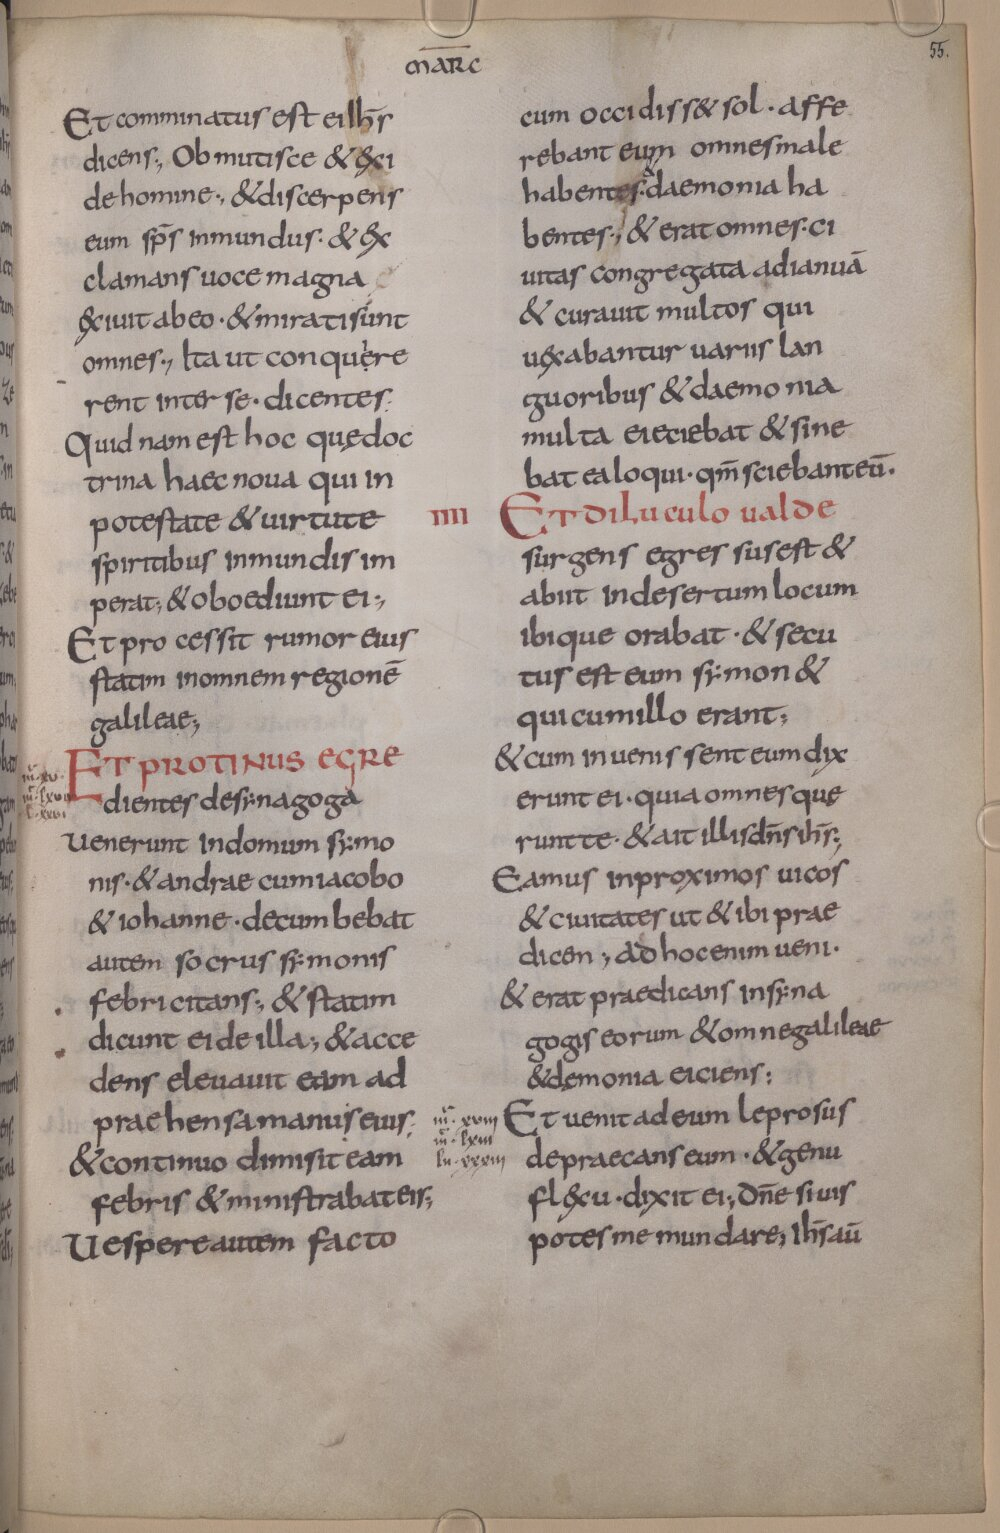 MARC
55.
Et comminatus est ei ih̄s
dicens; Obmutisce & exi
de homine; & discerpens
eum sp̄s inmundus · & ex
clamans uoce magna
exiuit ab eo · & mirati sunt
omnes; Ita ut conquere
rent inter se · dicentes:
Quidnam est hoc quę doc
trina haec noua qui in
potestate & uirtute
spiritibus inmundis im
perat; & oboediunt ei;
Et processit rumor eius
statim in omnem regionē
galileae;
Et protinus egre
dientes de synagoga
Uenerunt in domum symo
nis · & andrae cum iacobo
& iohanne · decumbebat
autem socrus symonis
febricitans; & statim
dicunt ei de illa; & acce
dens eleuauit eam ad
praehensa manus eius;
& continuo dimisit eam
febris & ministrabat eis;
Uespere autem facto
cum occidiss& sol · affe
rebant eum omnes male
habentes & daemonia ha
bentes; & erat omnes · ci
uitas congregata ad ianuā
& curauit multos qui
uexabantur uariis lan
guoribus & daemonia
multa eieciebat & sine
bat ea loqui · qm̄ sciebant eū.
IIII Et diluculo ualde
surgens egressus est &
abiit in desertum locum
ibique orabat · & secu
tus est eum symon &
qui cum illo erant;
& cum inuenissent eum dix
erunt ei · quia omnes que
runt te · & ait illis dn̄s ih̄s;
Eamus in proximos uicos
& ciuitates ut & ibi prae
dicen; ad hoc enim ueni.
& erat praedicans in syna
gogis eorum & omne galileae
& demonia eiciens;
Et uenit ad eum leprosus
depraecans eum · & genu
flexu · dixit ei; dn̄e si uis
potes me mundare; ih̄s aū